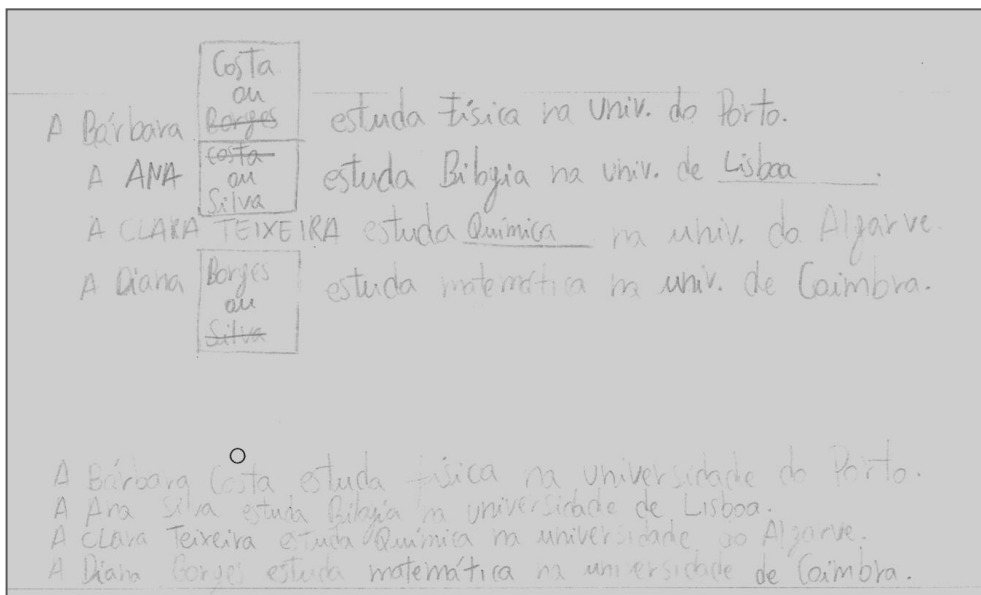 Costa
ou
A Bárbara Borges estuda física na univ. do Porto.
Costa
A ANA ou estuda Biologia na univ. de Lisboa.
Silva
A CLARA TEIXEIRA estuda Química na univ. do Algarve.
A Diana Borges estuda matemática na univ. de Coimbra.
ou
Silva
A Bárbara Costa estuda física na universidade do Porto.
A Ana Silva estuda Biologia na universidade de Lisboa.
A Clara Teixeira estuda Química na universidade do Algarve.
A Diana Borges estuda matemática na universidade de Coimbra.